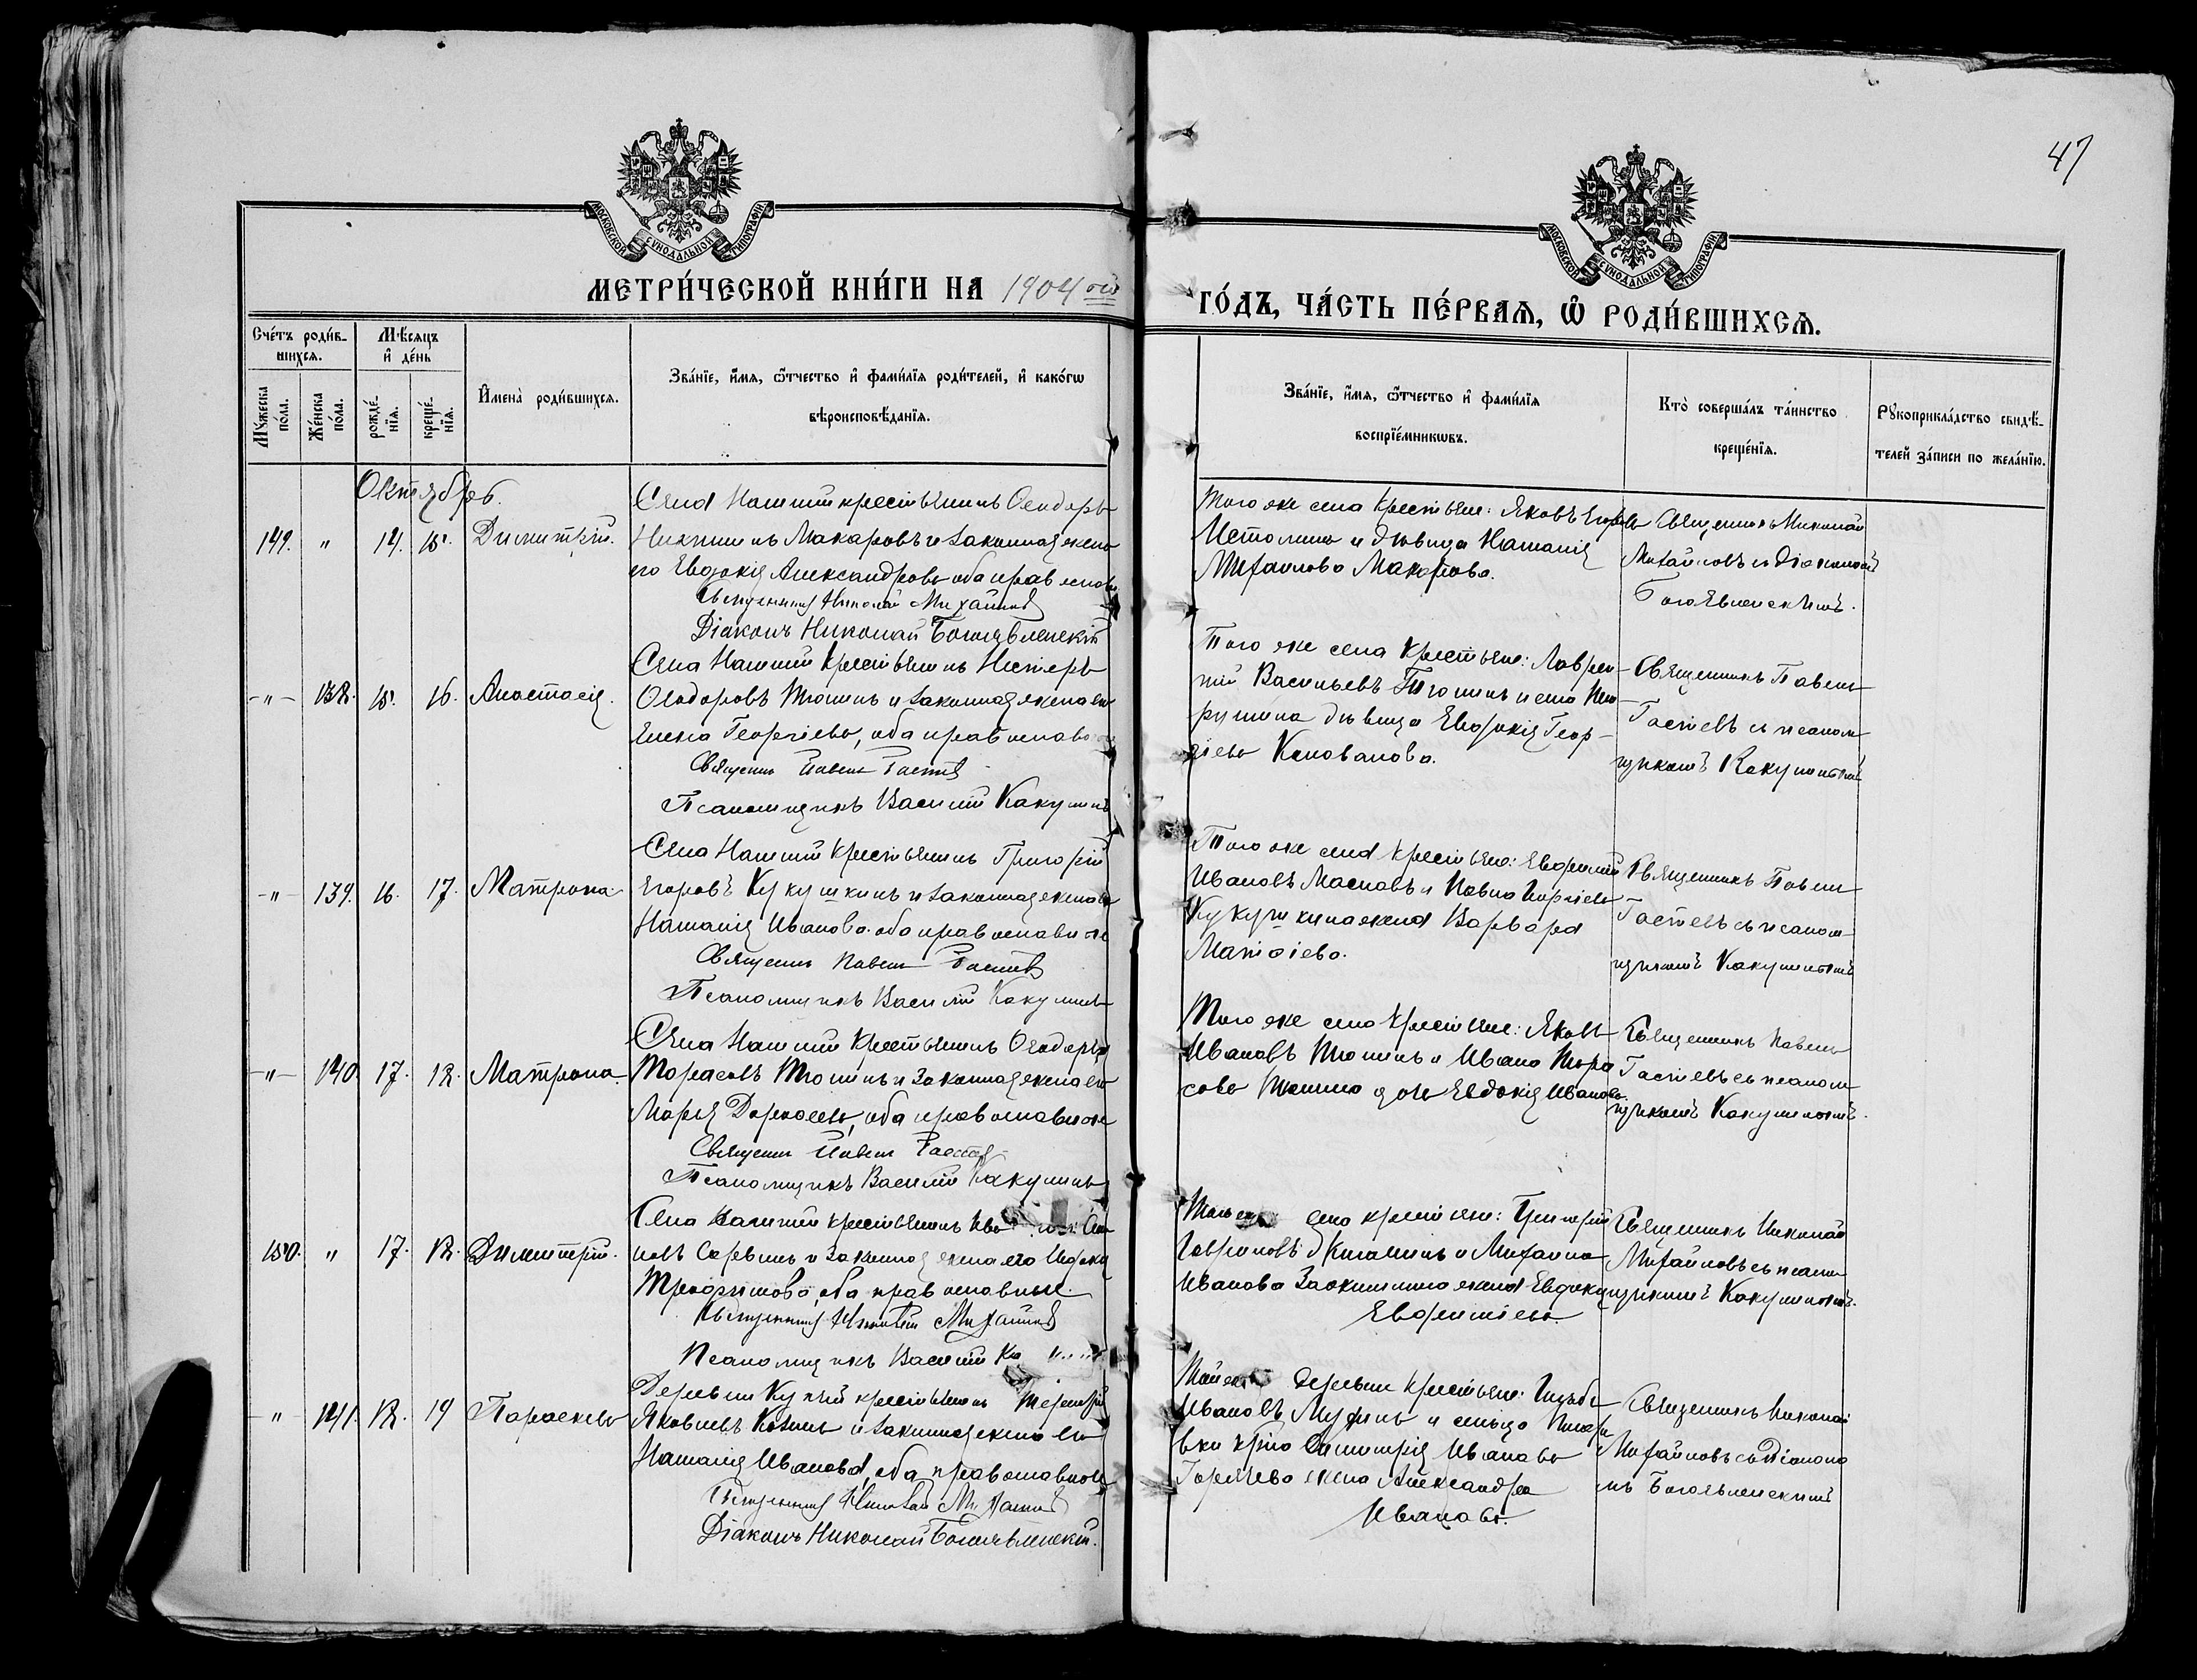 47
МОСКОВСКОЙ СѴНОДАЛЬНОЙ ТИПОГРАФІИ
МОСКОВСКОЙ СѴНОДАЛЬНОЙ ТИПОГРАФІИ
МЕТРИ́ЧЕСКОЙ КНИ́ГИ НА 1904 ой
ГО́ДЪ, ЧА́СТЬ ПЕ́РВАѦ, Ѡ҆ РОДИ́ВШИХСѦ.
Сче́тъ роди́в-
шихсѧ.
Мѣ́сѧцъ
и҆ де́нь
Мꙋ́жеска по́ла.
Же́нска по́ла.
рожде́-
нїѧ.
креще́-
нїѧ.
И҆мена̀ роди́вшихсѧ.
Зва́нїе, и҆́мѧ, ѻ҆́тчество и҆ фами́лїѧ роди́телей, и҆ како́гѡ
вѣроисповѣ́данїѧ.
Зва́нїе, и҆́мѧ, ѻ҆́тчество и҆ фами́лїѧ
воспрїе́мникѡвъ.
Кто̀ соверша́лъ та́инство
креще́нїѧ.
Рꙋкоприкла́дство свидѣ́-
телей за́писи по жела́нїю.
Октябрь.
149. " 14. 15. Димитрій.
Села Нашии крестьянинъ Ѳеодоръ
Никитинъ Макаровъ и законная жена
его Евдокія Александрова оба православ
Священникъ Николай Михайловъ
Діаконъ Николай Богоявленскій
Того же села крестьяне: Яковъ Егоровъ
и дѣвица Наталія
Михаилова Макарова.
Священникъ Николай
Михайловъ съ діакономъ
Богоявленскимъ.
-"- 138. 15. 16. Анастасія.
Села Нашии крестьянинъ Несторъ
Ѳеодоровъ Тюринъ и законная жена его
Елена Георгіева, оба православ
Священникъ Павелъ Гастевъ
Псаломщикъ Василій Какушинъ
Того же села крестьяне: Лаврен-
тій Васильевъ Тюринъ и села
дѣвица Евдокія Геор-
гіева Коновалова.
Священникъ Павелъ
Гастевъ съ псалом-
щикомъ Какушинымъ
-"- 139. 16. 17. Матрона
Села Нашии крестьянинъ Григорій
Егоровъ Кукушкинъ и законная жена его
Наталія Иванова оба православные
Священникъ Павелъ Гастевъ
Псаломщикъ Василій Какушинъ
Того же села крестьяне: Евфимій
Ивановъ Масловъ и Павла
Кукушкина жена Варвара
Матѳіева.
Священникъ Павелъ
Гастевъ съ псалом-
щикомъ Какушинымъ
-"- 140. 17. 18. Матрона.
Села Нашии крестьянинъ Ѳеодоръ
Тарасовъ Тюринъ и законная жена его
Марія оба православные
Священникъ Павелъ Гастевъ
Псаломщикъ Василій Какушинъ
Того же села крестьяне: Яковъ
Ивановъ Тюринъ и Ивана Тара
сова Тюрина дочь Евдокія Иванова.
Священникъ Павелъ
Гастевъ съ псалом
щикомъ Какушинымъ.
150. " 17. 18. Димитрій.
Села Нашии крестьянинъ
и законная жена его
Трофимова, оба православные.
Священникъ Николай Михайловъ
Псаломщикъ Василій
села крестьяне: Григорій
Гавриловъ и Михаила
Иванова жена Евдокія
Евфиміева.
Священникъ Николай
Михайловъ съ псалом
щикомъ Какушинымъ.
-"- 141. 18. 19 Параскева
Деревни крестьянинъ
Яковлевъ и законная жена его
Наталія Иванова, оба православные
Священникъ Николай Михайловъ
Діаконъ Николай Богоявленскій.
деревни крестьяне:
Ивановъ и
Димитрія Иванова
жена Александра
Иванова.
Священникъ Николай
Михайловъ съ діаконо
мъ Богоявленскимъ